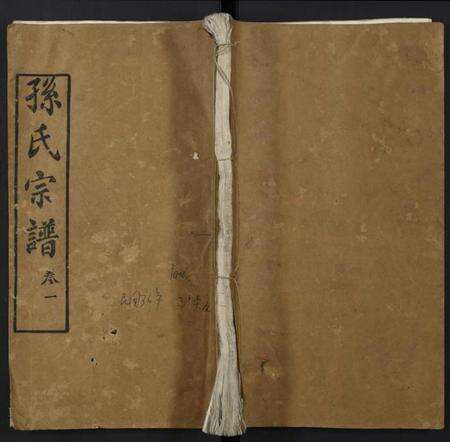 孫氏宗譜
卷一